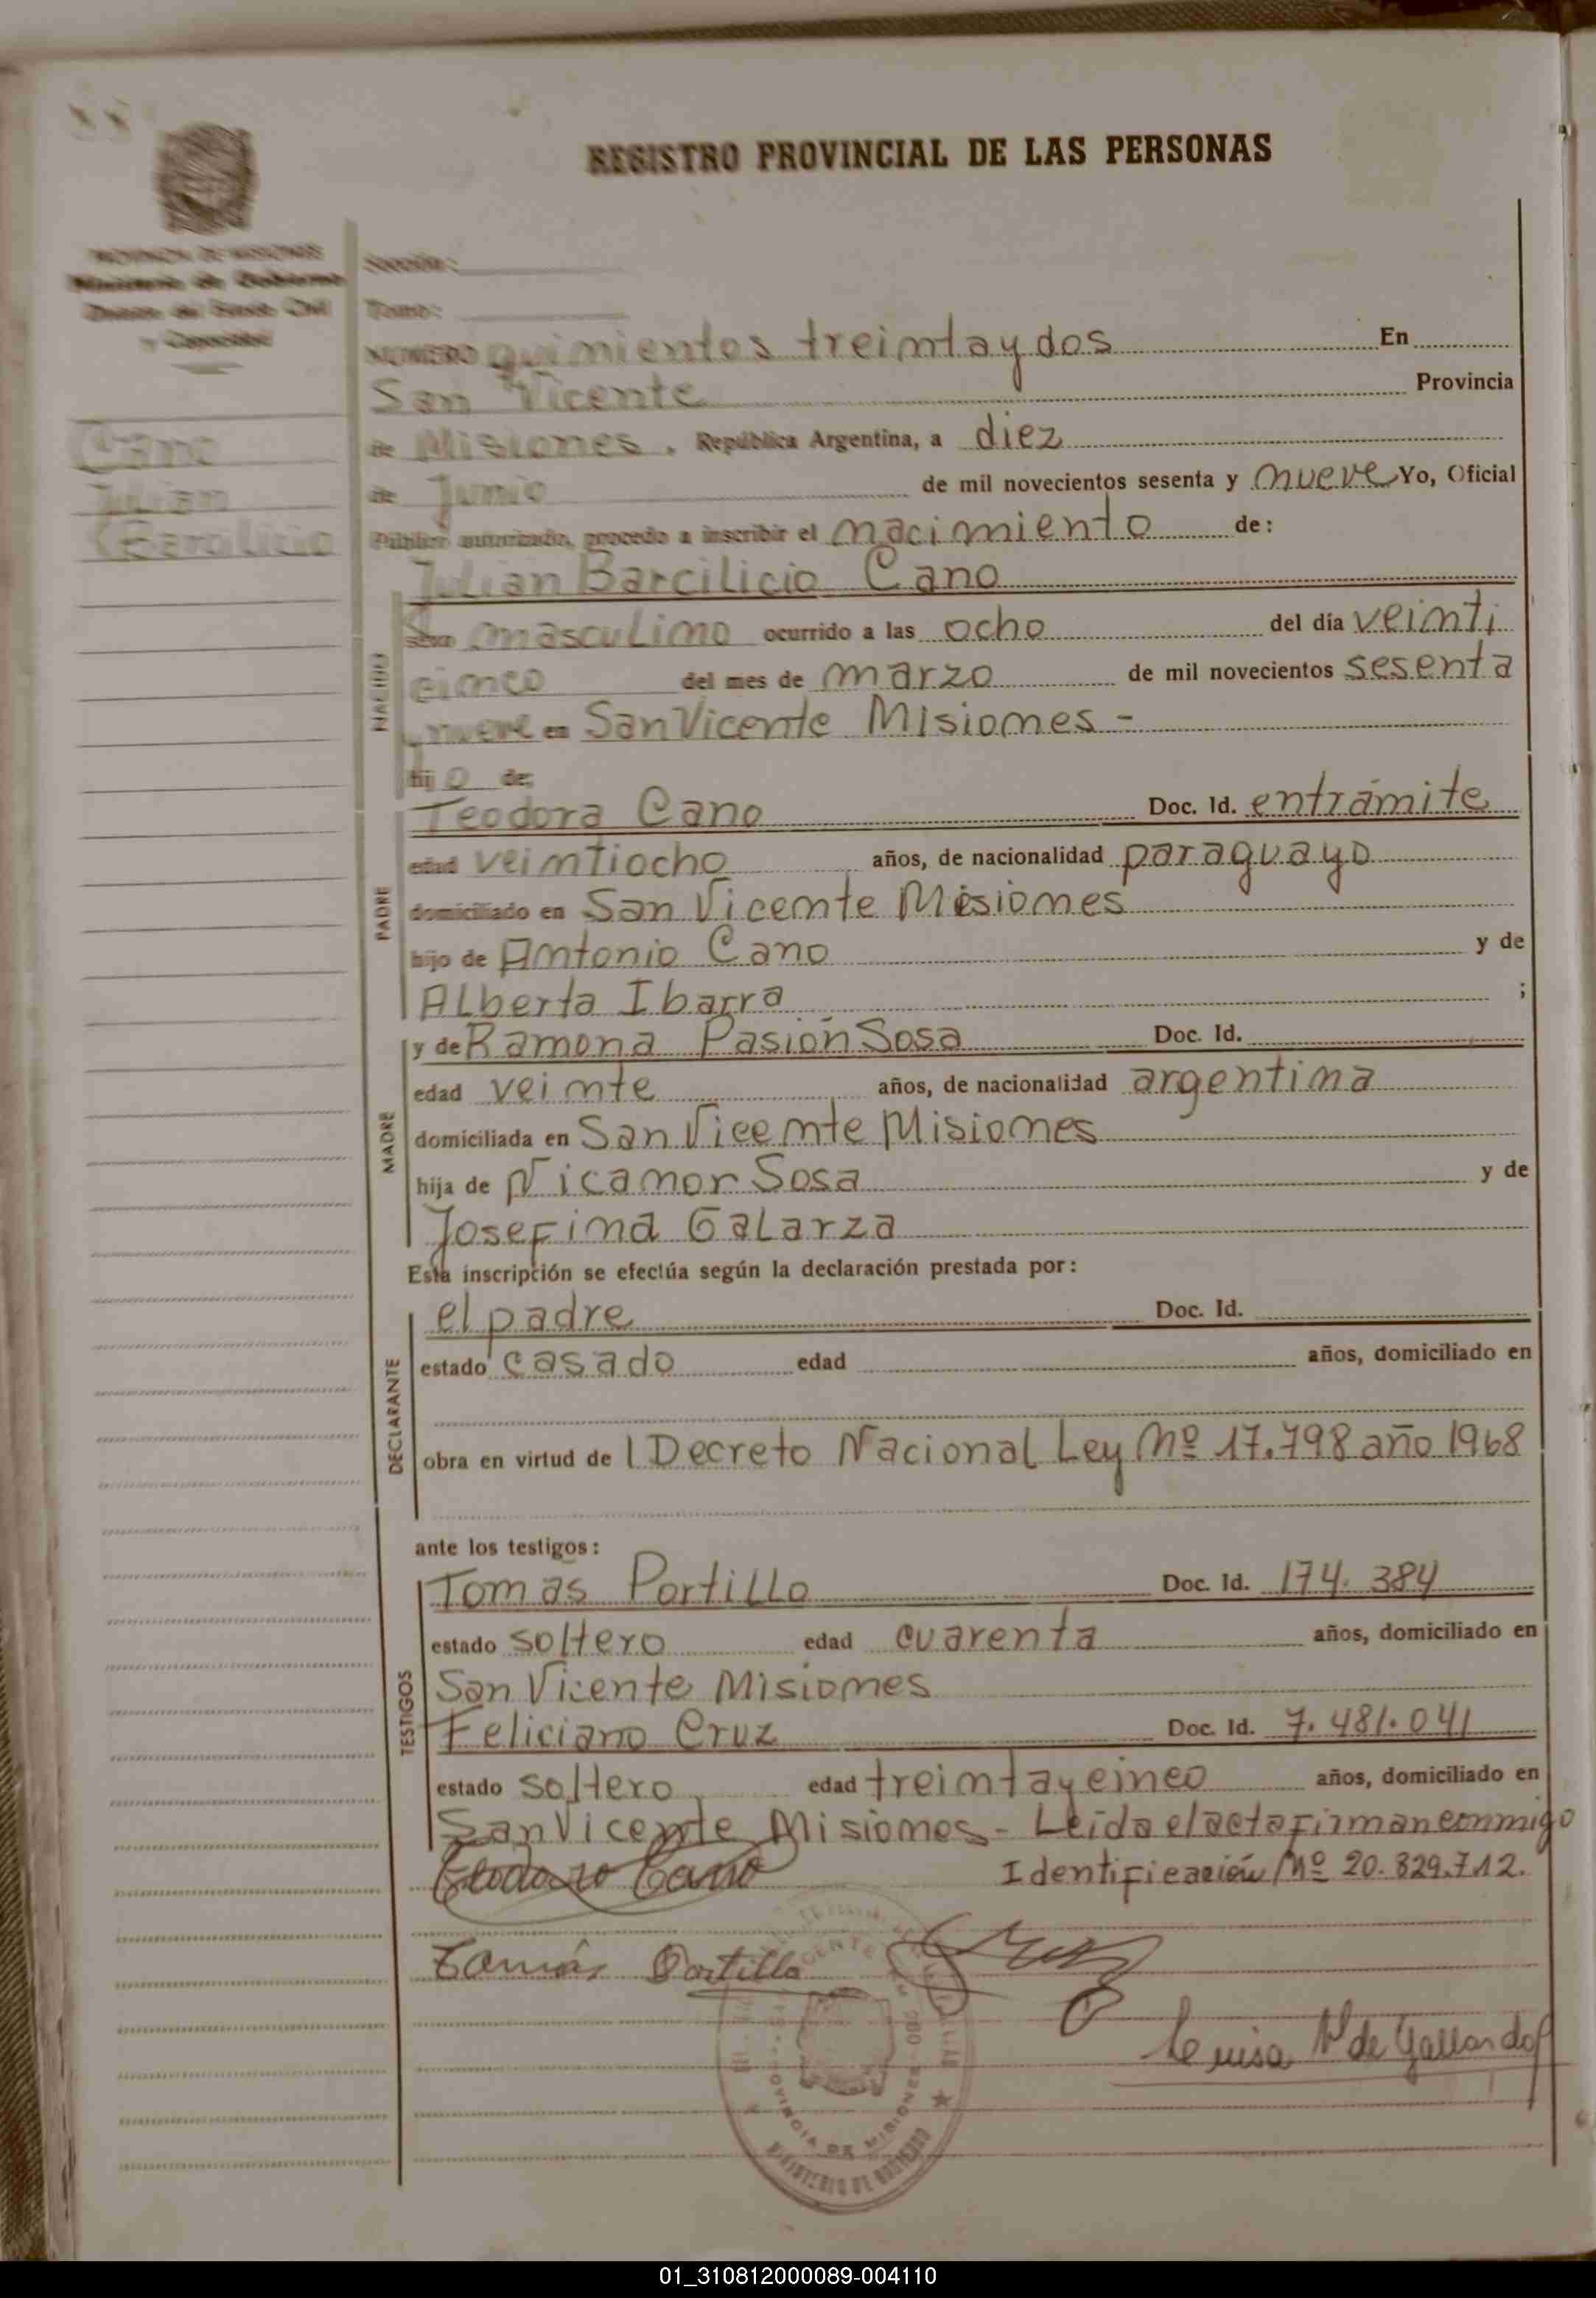 REGISTRO PROVINCIAL DE LAS PERSONAS
PROVINCIA DE MISIONES
Ministerio de Gobierno
y Capacidad
Sección:
Tomo:
NUMERO quinientos treinta y dos En
San Vicente Provincia
de Misiones. República Argentina, a diez
de Junio de mil novecientos sesenta y nueve Yo, Oficial
Público autorizado, procedo a inscribir el nacimiento de:
Cano
Julian
Julian Barcilicio Cano
sexo masculino ocurrido a las ocho del día veinti
cinco del mes de marzo de mil novecientos sesenta
y nueve en San Vicente Misiones -
hijo de:
NACIDO
Teodora Cano Doc. Id. entrámite
edad veintiocho años, de nacionalidad paraguayo
domiciliado en San Vicente Misiones
hijo de Antonio Cano y de
Alberta Ibarra ;
PADRE
y de Ramona Pasión Sosa Doc. Id.
edad veinte años, de nacionalidad argentina
domiciliada en San Vicente Misiones
hija de Nicanor Sosa y de
Josefina Galarza
MADRE
Esta inscripción se efectúa según la declaración prestada por:
el padre Doc. Id.
estado casado edad años, domiciliado en
obra en virtud de l Decreto Nacional Ley Nº 17.798 año 1968
DECLARANTE
ante los testigos:
Tomas Portillo Doc. Id. 174.384
estado soltero edad cuarenta años, domiciliado en
San Vicente Misiones
Feliciano Cruz Doc. Id. 7.481.041
estado soltero edad treinta y cinco años, domiciliado en
San Vicente Misiones - Leida el acta firman conmigo
TESTIGOS
Identificación Nº 20.829.712.
Teodoro Cano
Tomás Portillo
Luisa de Gallardo
PROVINCIA DE MISIONES
MINISTERIO DE GOBIERNO
01_310812000089-004110